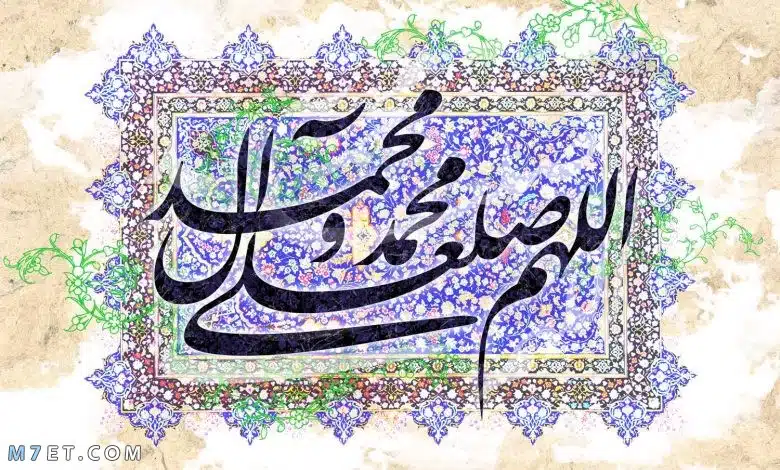 اللهم صل علی محمد و آل محمد
M7ET.COM